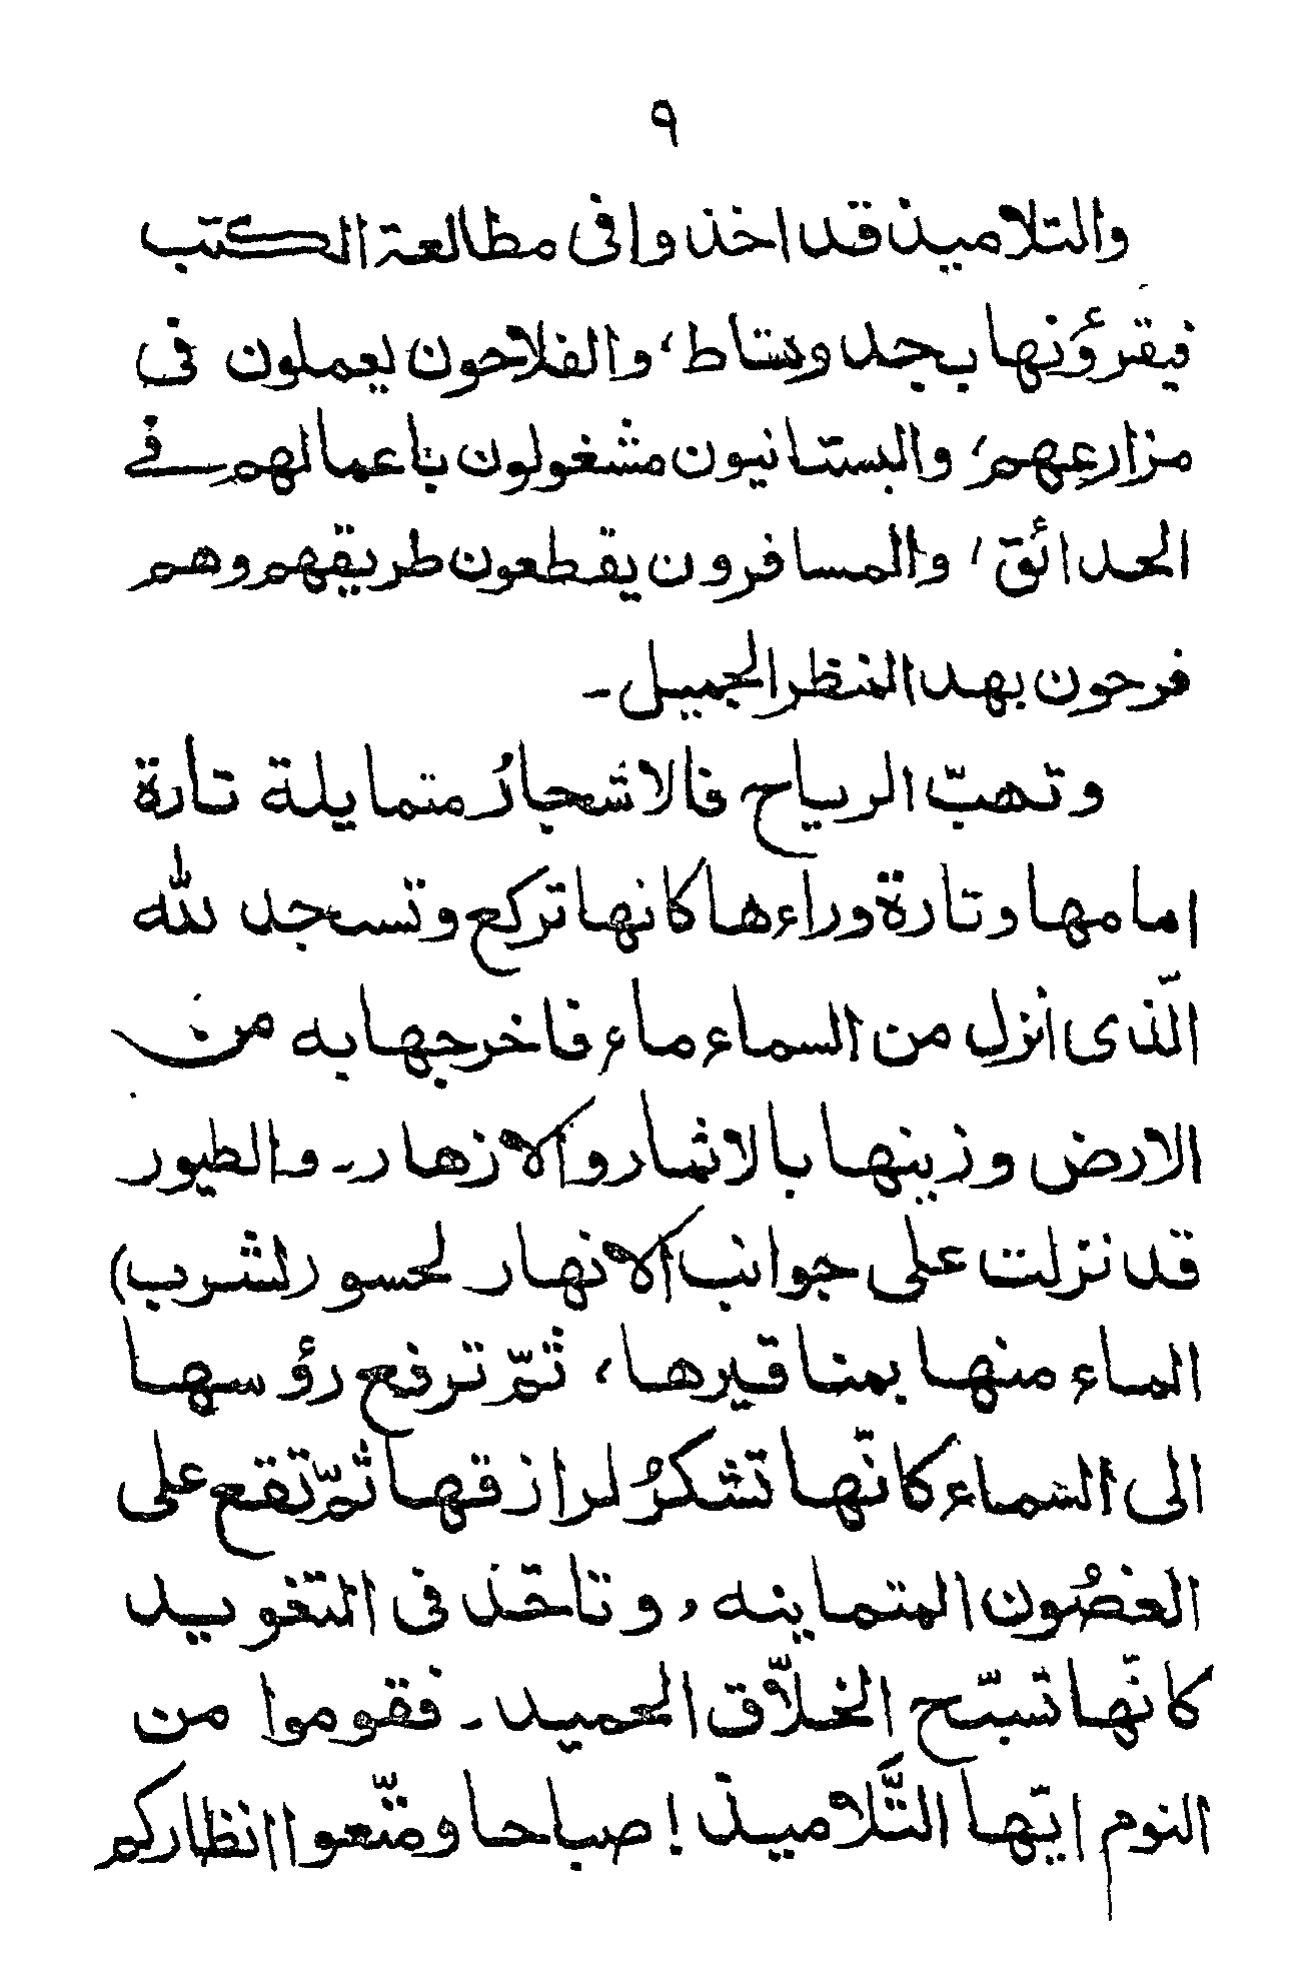 ٩
والتلاميذ قد اخذوا فى مطالعة الكتب
فيقرؤنها بجد ونشاط، والفلاحون يعملون فى
مزارعهم، والبستانيون مشغولون باعمالهم فے
الحدائق، والمسافرون يقطعون طريقهم وهم
فرحون بهذا المنظر الجميل۔
وتهبّ الرياح فالاشجارُ متمايلة تارة
امامها وتارة وراءها كانها تركع وتسجد لله
الّذى انزل من السماء ماء فاخرجها به من
الارض وزينها بالاثمار والازهار۔ والطيور
قد نزلت على جوانب الانهار لحسو (لشرب)
الماء منها بمناقيرها، ثمّ ترفع رؤسها
الى السماء كانّها تشكرُ لرازقها ثمّ تقع على
الغصُون المتماينه، وتاخذ فى التغريد
كانّها تسبّح الخلاّق الحميد۔ فقوموا من
النوم ايّها التَّلاميذ! صباحا ومتّعوا انظاركم